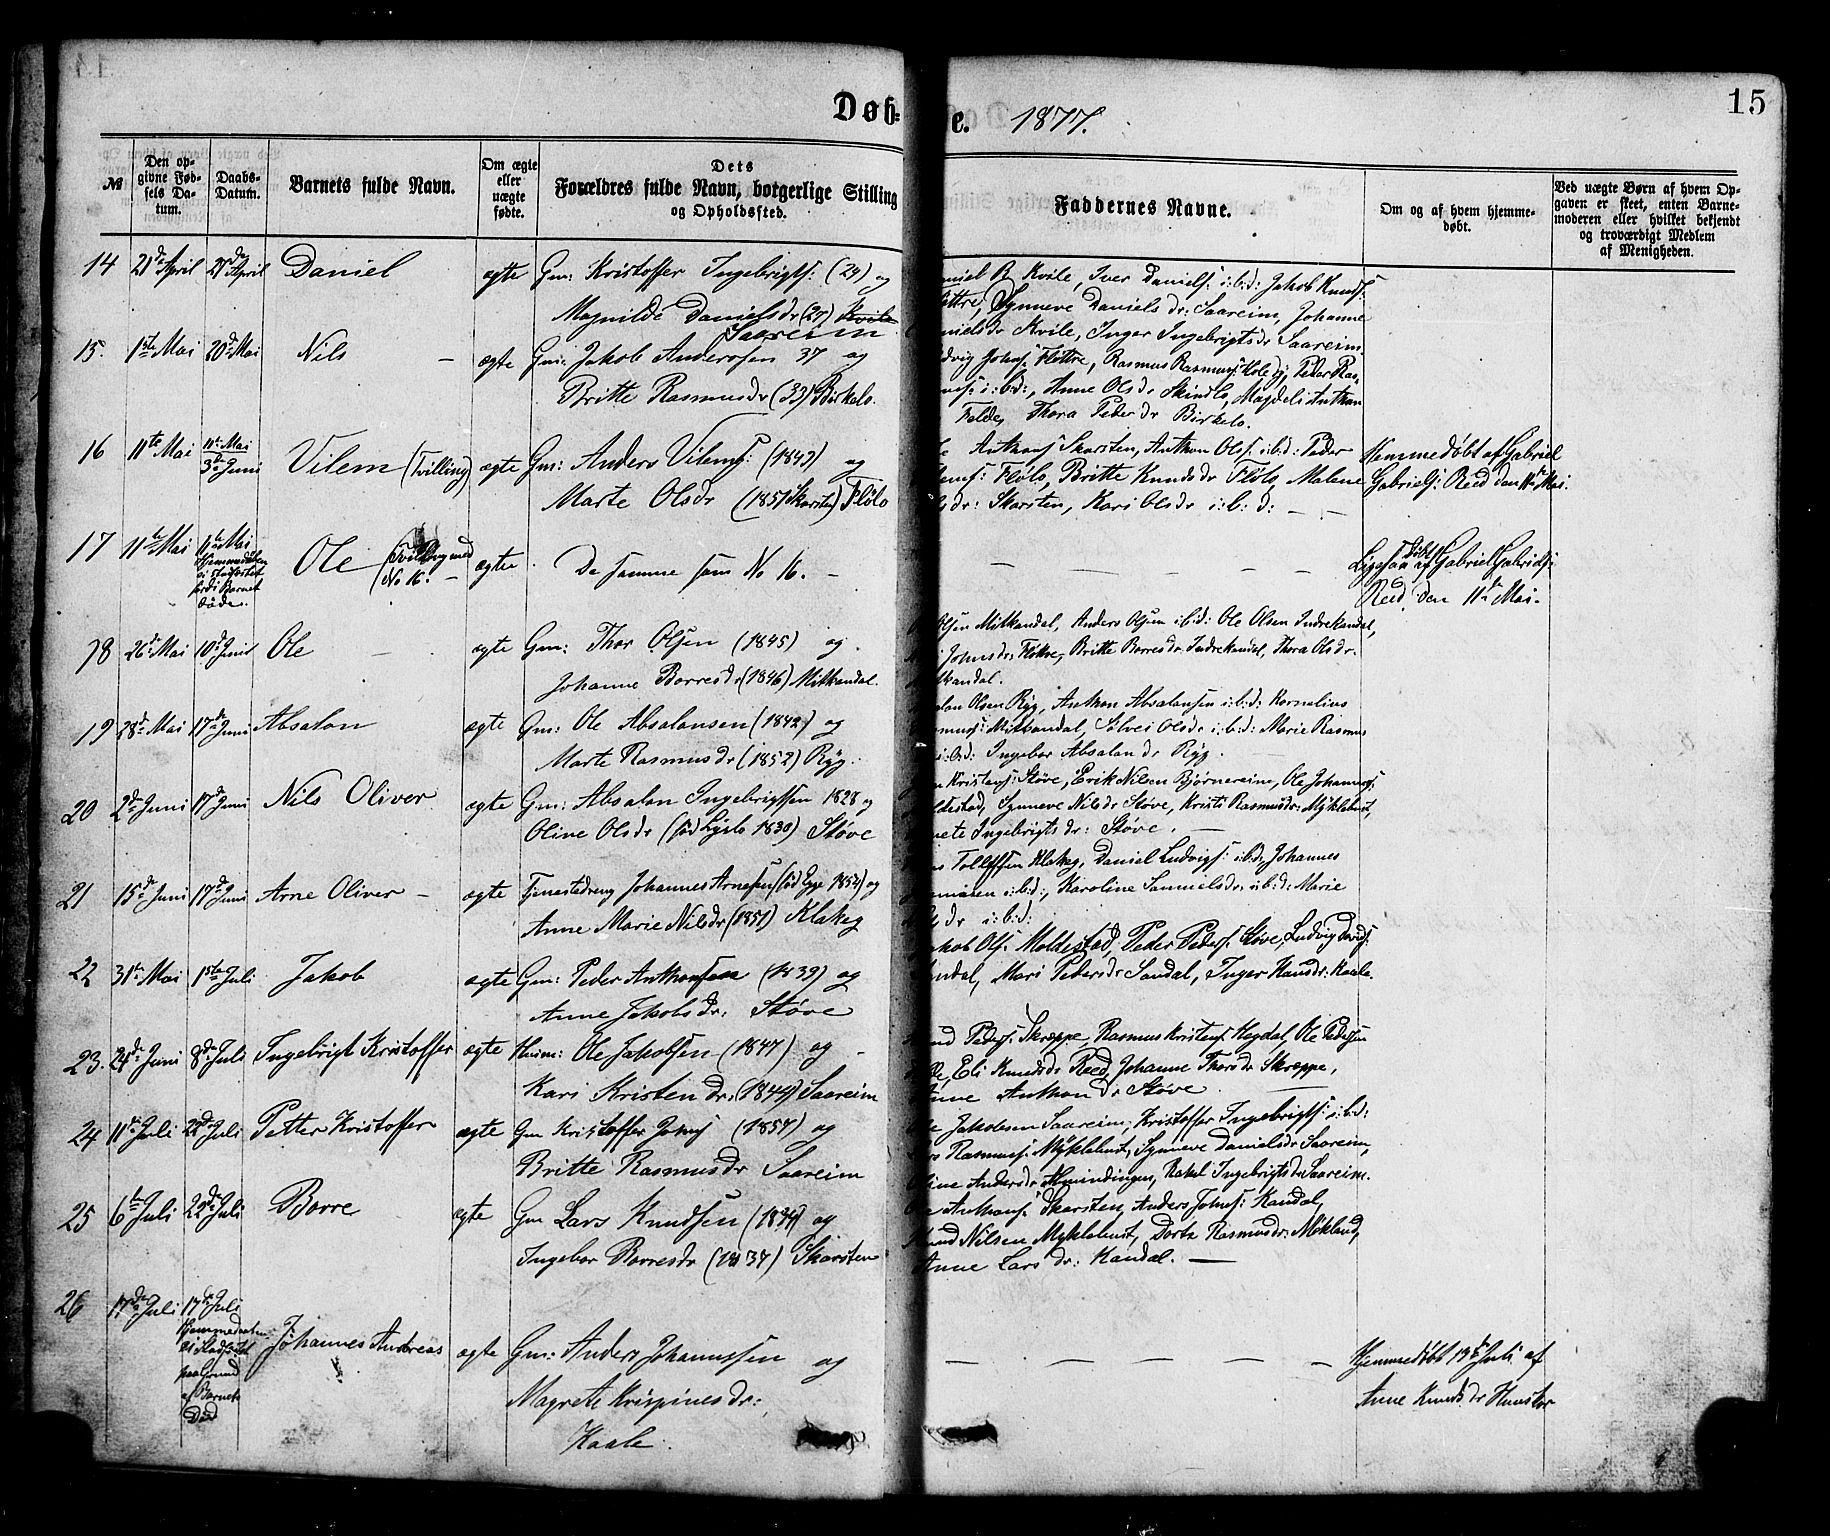 15
Døb=
e. 1877.
№
Den op-
givne Fød-
sels Da-
tum.
Daabs-
Datum.
Barnets fulde Navn.
Om ægte
eller
uægte
fødte.
Dets
Forældres fulde Navn, borgerlige Stilling
og Opholdssted.
Faddernes Navne.
Om og af hvem hjemme-
døbt.
Ved uægte Børn af hvem Op-
gaven er skeet, enten Barne-
moderen eller hvilket bekjendt
og troværdigt Medlem
af Menigheden.
14 21de April 29de April Daniel ægte Gm: Kristoffer Ingebrigts: (29) og
Magnilde Danielsdr (27) Kvile
Saareim
Daniel R Kvile, Iver Daniels: i:b:d: Jakob Knuds:
Fløttre, Synneve Daniels dr: Saareim, Johanne
Danielsdr Kvile, Inger Ingebrigtsdr Saareim.
15. 1ste Mai 20de Mai Nils - ægte Gm: Jakob Andersen 37 og
Britte Rasmusdr (33) Birkelo.
Ludvig Johns: Fløttre, Rasmus Rasmus: Peder Ras-
mus: i:b:d:, Anne Olsdr Skinlo, Magdeli Anthon
Felde, Thora Peder dr Birkelo.
16 11te Mai 11te Mai
3de Juni Vilem (Tvilling) ægte Gm: Anders Vilems: (1843) og
Marte Olsdr (1851 Skarsten) Flølo
Anthons: Skarsten, Anthon Ols: i:b:d: Peder
Flølo, Britte Knudsdr Flølo, Malene
Olsdr: Skarsten, Kari Olsdr i:b:d: - -
Hemmedøbt af Gabriel
Gabriels: Reed den 11te Mai.
17 11te Mai 11te Mai
Hjemmedaaben
ei stadfæstet
fordi Barnet
døde. Ole (Tvilling med
No 16. - ægte. De samme som No 16. -
- - - - -
Ligesaa døbt af Gabriel Gabriels:
Reed, den 11te Mai.
18 26de Mai 10de Juni Ole - ægte Gm: Thor Olsen (1845) og
Johanne Borresdr (1846) Mitkandal.
Olsen Mitkandal, Anders Olsen i:b:d: Ole Olsen Indrekandal,
Johnsdr: Fløttre, Britte Borresdr: Indrekandal, Thora Olsdr.
Mitkandal.
19 28de Mai 17de Juni Absalon ægte Gm: Ole Absalonsen (1842) og
Marte Rasmusdr (1852) Ryg.
Absalon Olsen Ryg, Anthon Absalonsen i:b:d: Kornelius
Rasmus: Mitkandal, Sølvei Olsdr i:b:d: Marie Rasmus
i:b:d: Ingebor Absalon dr Ryg.
20 2den Juni 17de Juni Nils Oliver ægte Gm: Absalon Ingebrigtsen 1828 og
Oline Olsdr (fød Lyslo 1830) Støve
Kristens: Støve, Erik Nilsen Bjørnereim, Ole Johannes:
Moldestad, Synneve Nilsdr Støve, Kristi Rasmusdr: Myklebust,
Ingebrigts dr: Støve. -
21 15de Juni 17de Juni Arne Oliver - ægte Tjenestedreng Johannes Arnesen (fød Egge 1854) og
Anne Marie Nilsdr (1851) Klakeg
Tollefssen Klakeg, Daniel Ludvigs: i:b:d: Johannes
i:b:d:, Karoline Samuelsdr: i:b:d: Marie
dr i:b:d:
22 31te Mai 1ste Juli Jakob ægte Gm: Peder Anthonsen (1839) og
Anne Jakobsdr: Støve
Jakob Ols: Moldestad, Peder Peders: Støve, Ludvig Davids:
Sandal, Mari Pedersdr Sandal, Inger Hansdr: Kaale.
23. 24de Juni 8de Juli Ingebrigt Kristoffer ægte Husm: Ole Jakobsen (1847) og -
Kari Kristendr: (1844) Saareim
Peders: Skrøppe, Rasmus Kristens: Hegdal, Ole Pedersen
Eli Knudsdr Reed, Johanne Thorsdr Skrøppe,
Anne Anthon dr Støve
24 11te Juli 22de Juli Petter Kristoffer ægte Gm Kristoffer Johns: (1854) og
Britte Rasmusdr Saareim
Jakobsen Saareim, Kristoffer Ingebrigts: i:b:d:
Rasmus: Myklebust, Synneve Danielsdr Saareim,
Andersdr Almindingen, Rakel Ingebrigtsdr Saareim.
25 6te Juli 22de Juli Borre ægte Gm Lars Knudsen (1834) og
Ingebor Borresdr (1834) Skarsten
Anthons: Skarsten, Anders Johns: Kandal,
Knud Nilsen Myklebust, Dorte Rasmusdr: Møkland,
Anne Lars dr: Kandal. -
26 17de Juli 17de Juli
Hjemmedaaben
ei stadfæstet
paa Grund
af Barnets
Død Johannes Andreas ægte Gm: Anders Johannessen og
Magrete Krispinesdr:
Kaale.
- - - - -
Hjemmedøbt 19de Juli af
Anne Knudsdr